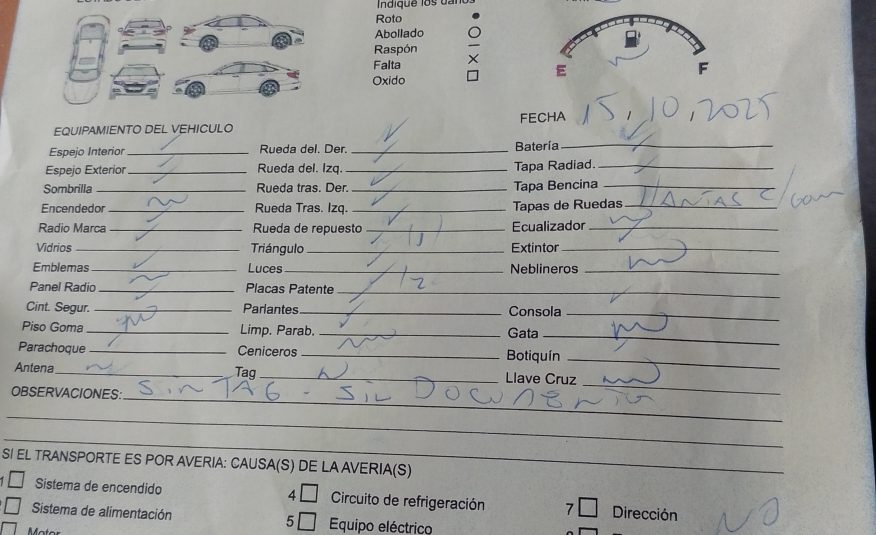 Indique los daños
Roto
Abollado
Raspón
Falta
Oxido
E F
FECHA 15, 10, 2025
EQUIPAMIENTO DEL VEHICULO
Espejo Interior Rueda del. Der. Batería
Espejo Exterior Rueda del. Izq. Tapa Radiad.
Sombrilla Rueda tras. Der. Tapa Bencina
Encendedor no Rueda Tras. Izq. Tapas de Ruedas LLANTAS C/Gom
Radio Marca Rueda de repuesto Ecualizador no
Vidrios Triángulo (1) Extintor
Emblemas Luces Neblineros no
Panel Radio no Placas Patente /2
Cint. Segur. Parlantes Consola
Piso Goma no Limp. Parab. Gata no
Parachoque Ceniceros no Botiquín
Antena no Tag N Llave Cruz no
OBSERVACIONES: Sin TAG - Sin Documento
SI EL TRANSPORTE ES POR AVERIA: CAUSA(S) DE LA AVERIA(S)
1 Sistema de encendido 4 Circuito de refrigeración 7 Dirección
Sistema de alimentación 5 Equipo eléctrico NO
Motor